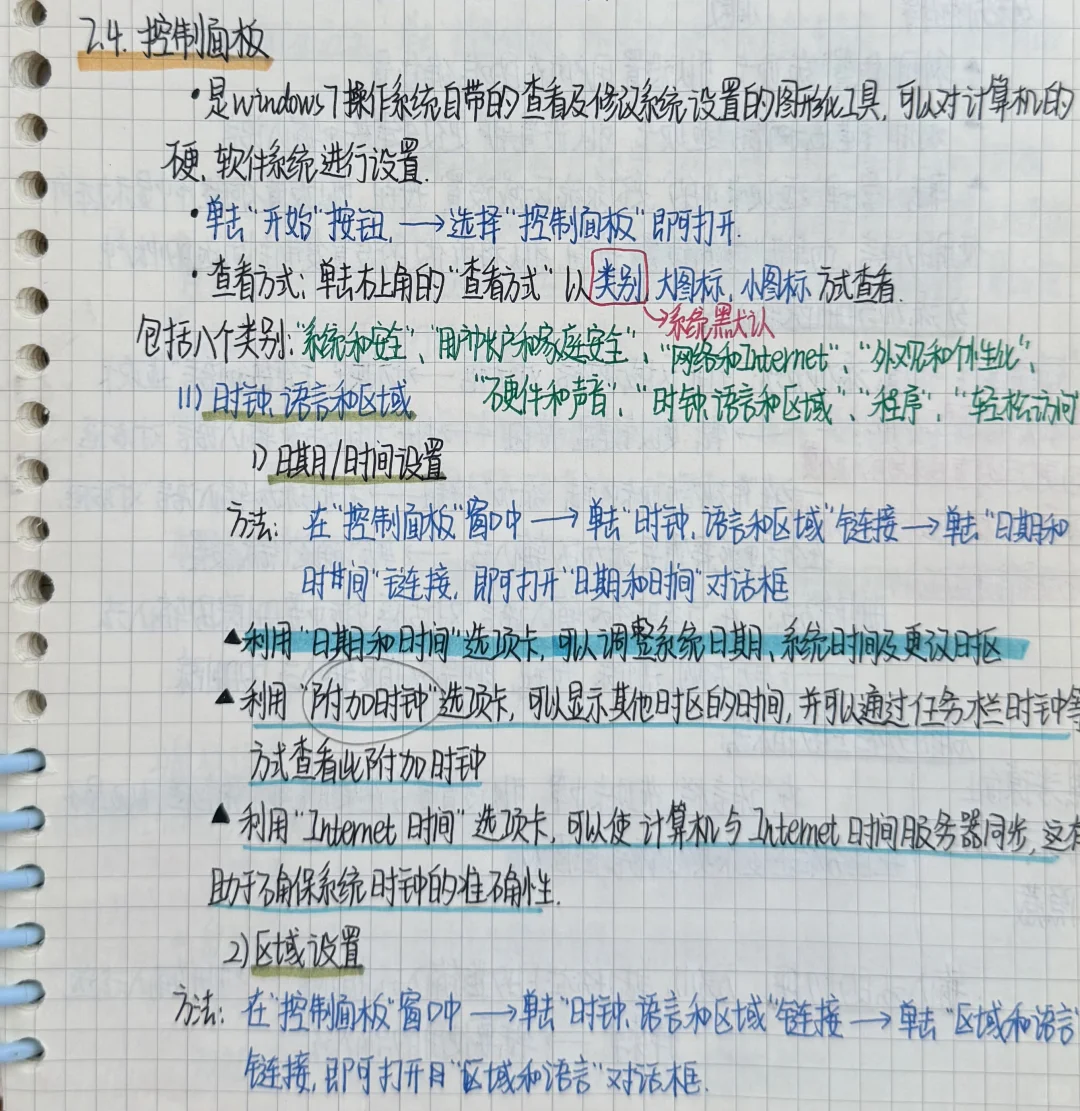 2.4. 控制面板
·是windows7操作系统自带的查看及修改系统设置的图形化工具,可以对计算机的
硬、软件系统进行设置.
·单击"开始"按钮,→选择"控制面板"即可打开.
·查看方式:单击右上角的"查看方式"以类别 大图标、小图标方式查看.
→系统默认
包括八个类别:"系统和安全"、"用户帐户和家庭安全"、"网络和Internet"、"外观和个性化"、
"硬件和声音"、"时钟、语言和区域"、"程序"、"轻松访问
(1)时钟、语言和区域
1)日期/时间设置
方法: 在"控制面板"窗口中→单击"时钟、语言和区域"链接→单击"日期和
时间"链接,即可打开"日期和时间"对话框
▲利用"日期和时间"选项卡,可以调整系统日期、系统时间及更改时区
▲利用"附加时钟"选项卡,可以显示其他时区的时间,并可以通过任务栏时钟等
方式查看此附加时钟
▲利用"Internet时间"选项卡,可以使计算机与Internet时间服务器同步,这有
助于确保系统时钟的准确性.
2)区域设置
方法: 在"控制面板"窗口中→单击"时钟、语言和区域"链接→单击"区域和语言
链接,即可打开"区域和语言"对话框.